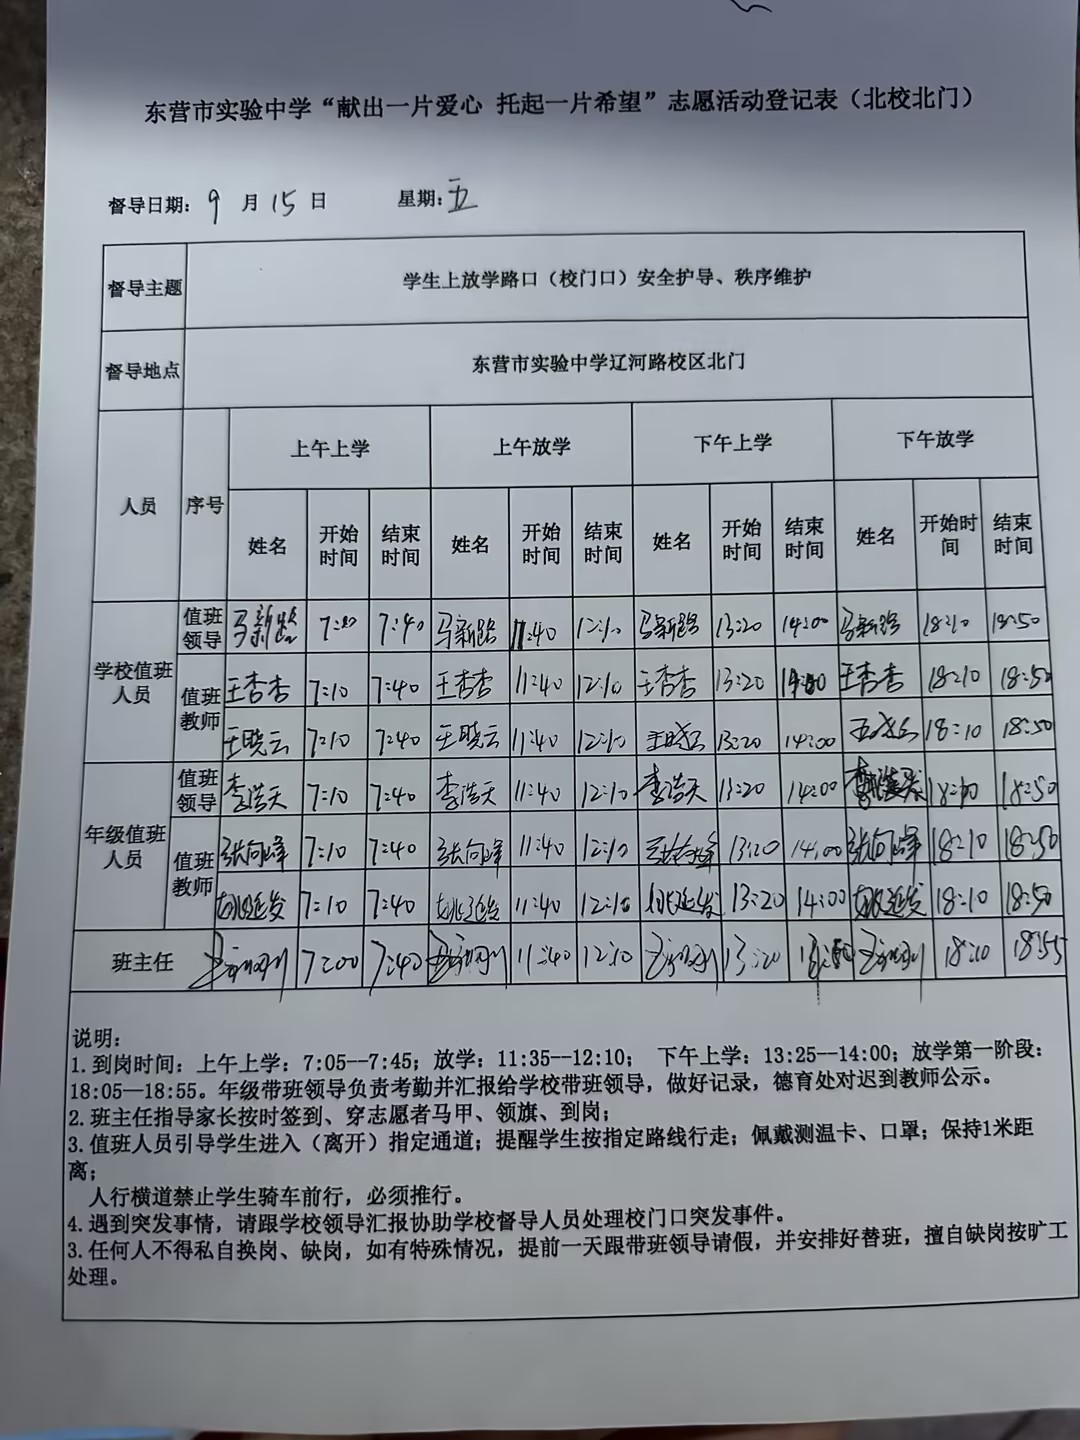 东营市实验中学“献出一片爱心 托起一片希望”志愿活动登记表（北校北门）
督导日期：9月15日 星期：五
督导主题 学生上放学路口（校门口）安全护导、秩序维护
督导地点 东营市实验中学辽河路校区北门
人员 序号 上午上学 上午放学 下午上学 下午放学
姓名 开始时间 结束时间 姓名 开始时间 结束时间 姓名 开始时间 结束时间 姓名 开始时间 结束时间
学校值班人员
值班领导 马新路 7:10 7:40 马新路 11:40 12:10 马新路 13:20 14:00 马新路 18:10 18:50
值班教师 王杏杏 7:10 7:40 王杏杏 11:40 12:10 王杏杏 13:20 14:00 王杏杏 18:10 18:50
王晓云 7:10 7:40 王晓云 11:40 12:10 王晓云 13:20 14:00 18:10 18:50
年级值班人员
值班领导 李浩天 7:10 7:40 李浩天 11:40 12:10 李浩天 13:20 14:00 18:10 18:50
值班教师 张向峰 7:10 7:40 张向峰 11:40 12:10 13:20 14:00 张向峰 18:10 18:50
姚延发 7:10 7:40 姚延发 11:40 12:10 姚延发 13:20 14:00 姚延发 18:10 18:50
班主任 7:00 7:40 11:40 12:10 13:20 18:10 18:55
说明：
1.到岗时间：上午上学：7:05--7:45；放学：11:35--12:10； 下午上学：13:25--14:00；放学第一阶段：
18:05—18:55。年级带班领导负责考勤并汇报给学校带班领导，做好记录，德育处对迟到教师公示。
2.班主任指导家长按时签到、穿志愿者马甲、领旗、到岗；
3.值班人员引导学生进入（离开）指定通道；提醒学生按指定路线行走；佩戴测温卡、口罩；保持1米距
离；
人行横道禁止学生骑车前行，必须推行。
4.遇到突发事情，请跟学校领导汇报协助学校督导人员处理校门口突发事件。
3.任何人不得私自换岗、缺岗，如有特殊情况，提前一天跟带班领导请假，并安排好替班，擅自缺岗按旷工
处理。